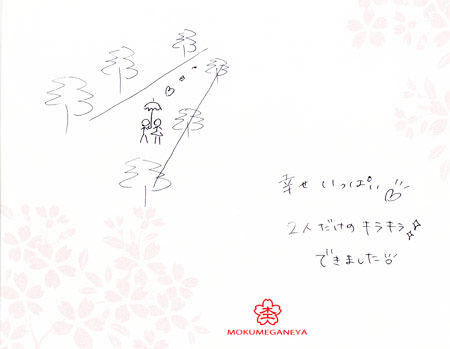 幸せいっぱい
2人だけのキラキラ
できました
MOKUMEGANEYA